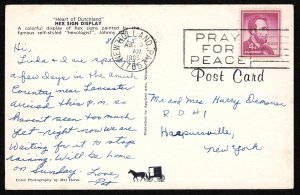 "Heart of Dutchland"
HEX SIGN DISPLAY
A colorful display of hex signs painted by the
famous self-styled "hexologist", Johnny
Hi,
Luke & I are spending
a few days in the Amish
Country near Lancaster
arrived this p.m. so
haven't seen too much
yet - right now we are
Waiting for it to stop
raining. Will be home
on Sunday. Love,
Pat
Color Photography by Mel Horst
NEW HOLLAND, PA.
AM
PRAY
FOR
PEACE
Post Card
Mr. and Mrs. Harry
R. D #1
Harpursville,
New York